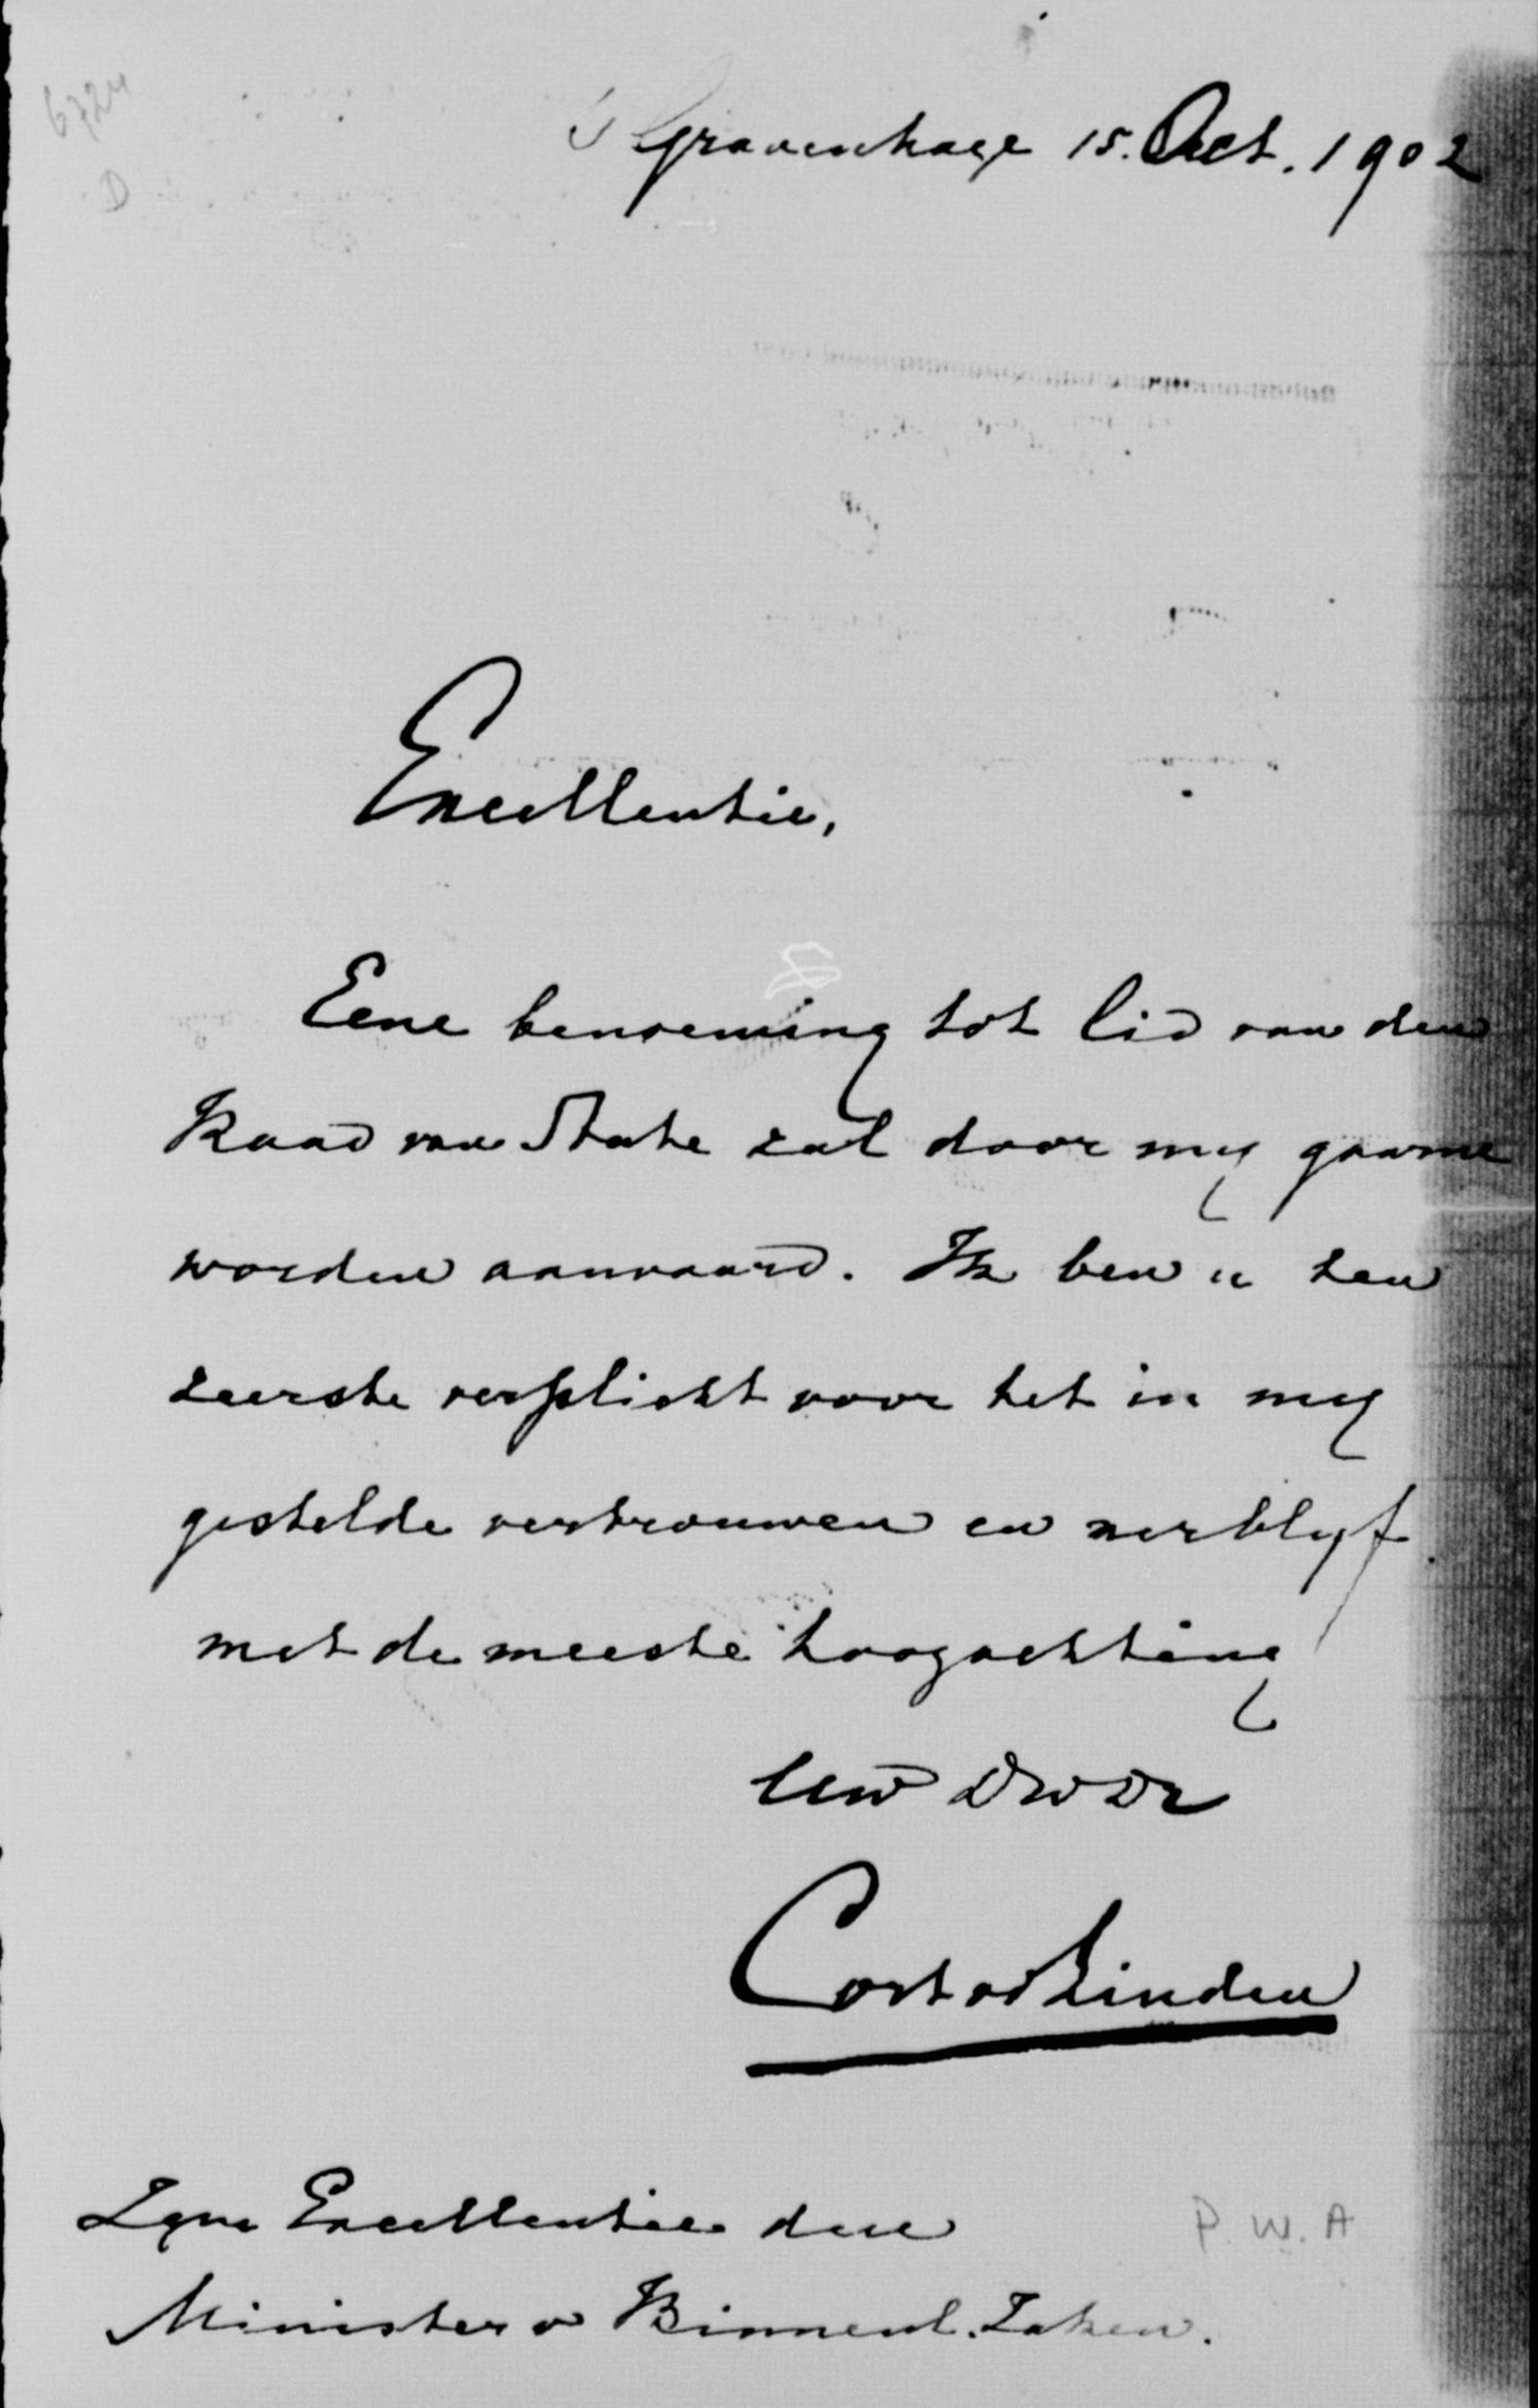 6724
D
's Gravenhage 15. Oct. 1902
Excellentie,
Eene benoeming tot lid van den
Raad van State zal door mij gaarne
worden aanvaard. Ik ben u ten
zeerste verplicht voor het in mij
gestelde vertrouwen en verblijf
met de meeste hoogachting
Uw Dw Dr
Cort vd Linden
Zijne Excellentie den
Minister v Binnenl. Zaken.
P. W. A